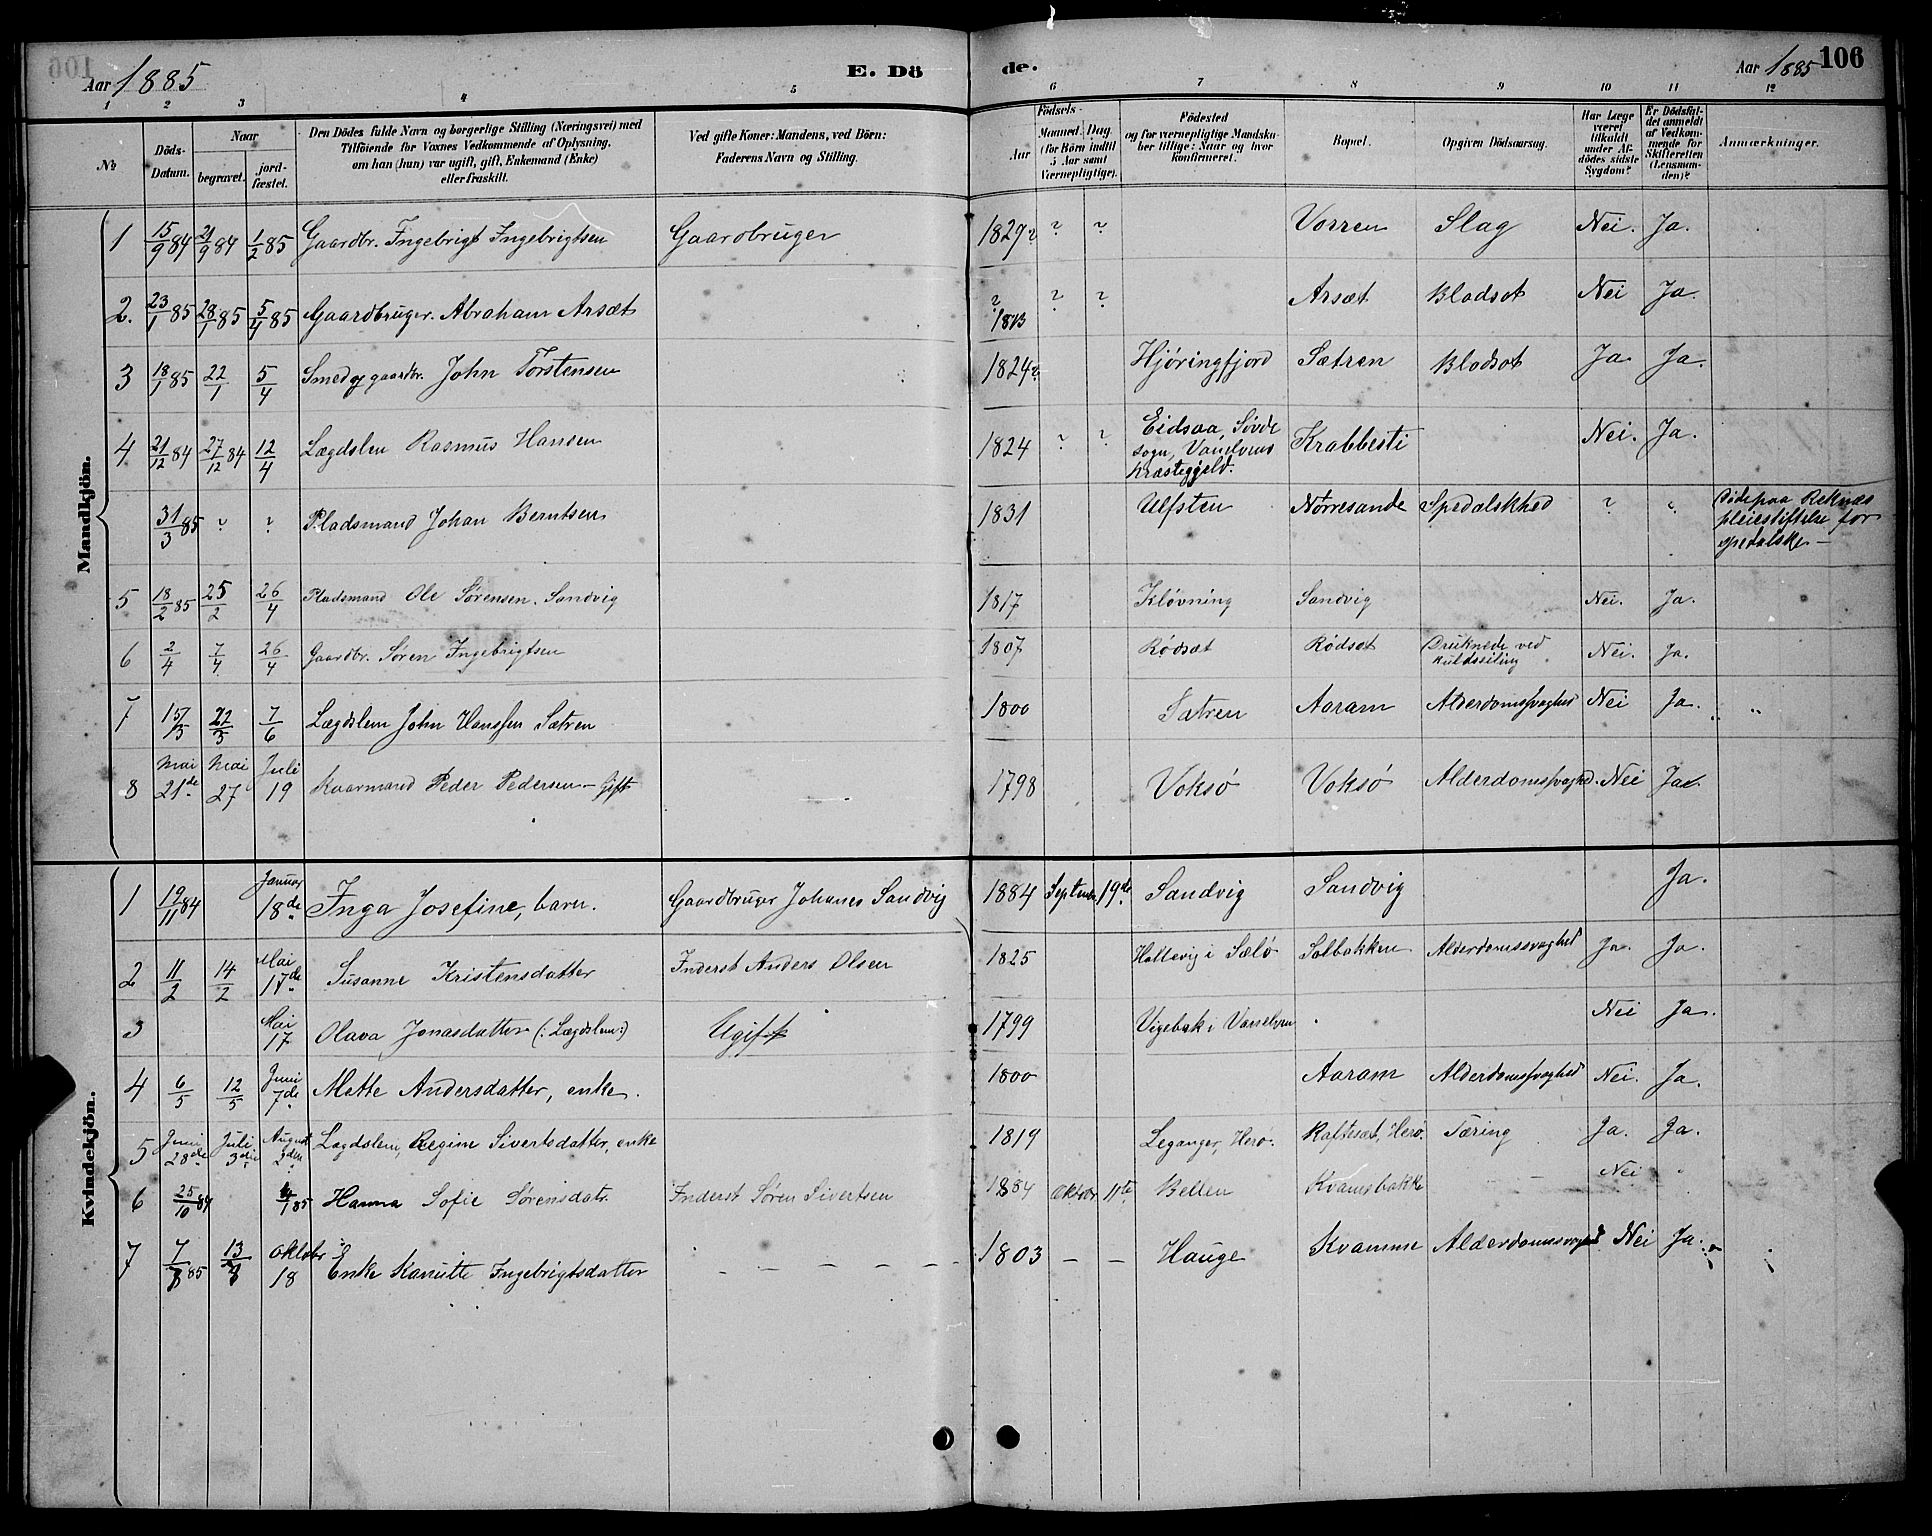 Aar 1885
E. Döde.
Aar 1885 106
1 2 3 4 5 6 7 8 9 10 11 12
No
Döds-Datum.
Naar
begravet.
jord-fæstet.
Den Dödes fulde Navn og borgerlige Stilling (Næringsvei) med
Tilföiende for Voxnes Vedkommende af Oplysning,
om han (hun) var ugift, gift, Enkemand (Enke)
eller fraskilt.
Ved gifte Koner: Mandens, ved Börn:
Faderens Navn og Stilling.
Födsels-
Aar
Maaned. Dag
(for Börn indtil
5 Aar samt
Værnepligtige).
Födested
og for værnepligtige Mandskaber tillige: Naar og hvor
konfirmeret.
Bopæl.
Opgiven Dödsaarsag.
Har Læge
været
tilkaldt
under Afdödes sidste
Sygdom?
Er Dödsfaldet anmeldt
af Vedkommende for
Skifteretten
(Lensmanden)?
Anmærkninger.
Mandkjön.
1 15/9 84 21/9 84 1/2 85 Gaardbr. Ingebrigt Ingebrigtsen Gaardbruger 1829? ? ? Vorren Slag Nei. Ja.
2. 23/1 85 28/1 85 5/4 85 Gaardbruger. Abraham Arsæt ? 1813 ? ? Arsæt Blodsot Nei Ja.
3 18/1 85 22/1 5/4 Smed og gaardbr. John Torstensen 1824? Hjøringfjord Sætren Blodsot Ja. Ja.
4 21/12 84 27/12 84 12/4 Lægdslem Rasmus Hansen 1824 ? ? Eidsaa, Søvde sogn, Vanelvens Præstegjeld. Krabbesti Nei. Ja.
31/3 85 ? ? Pladsmand Johan Berntsen 1831 Ulfsten Nørresande Spedalskhed ? " Døde paa Reknæs pleiestiftelse for spedalske —
5 18/2 85 25/2 26/4 Pladsmand Ole Sørensen. Sandvig 1817 Kløvning Sandvig Nei. Ja.
6 2/4 7/4 26/4 Gaardbr. Søren Ingebrigtsen 1807 Rødsæt Rødsæt Druknede ved kuldseiling Nei. Ja.
7 15/3 22/3 7/6 Lægdslem John Hanssen Sætren 1800 Sætren Aaram Alderdomssvaghed Nei Ja. " "
8 Mai 21de Mai 27 Juli 19 Kaarmand Peder Pedersen — Gift 1798 Voksø Voksø Alderdomssvaghed. Nei Ja.
Kvindekjön.
1 19/11 84 Januar 18de Inga Josefine, barn. Gaardbruger Johanes Sandvig 1884 Septembr 19de Sandvig Sandvig Ja.
2 11/2 14/2 Mai 17de Susanne Kristensdatter Inderst Anders Olsen 1825 Hallevig i Sælø Solbakken Alderdomssvaghed Ja. Ja.
3 Mai 17 Olava Jonasdatter (: Lægdslem:) Ugift 1799 Vigebak i Vanelven Nei Ja.
4 6/5 12/5 Juni 7de Mette Andersdatter, enke. 1800 Aaram Alderdomssvaghed Nei. Ja.
5 Juni 28de Juli 3die August 2den Lægdslem, Regine Sivertsdatter, enke 1819 Leganger, Herø. Raftesæt, Herø. Tæring Ja. Ja.
6 25/10 84 4/1 85 Hanna Sofie Sørensdatr. Inderst Søren Sivertsen 1884 Oktobr 11te Belten Kvamsbakke — — Nei "
7 7/8 85 13/8 Oktobr 18 Enke Kanutte Ingebrigtsdatter — — — — — 1803 — — Hauge Kvamme Alderdomssvaghed Nei Ja.